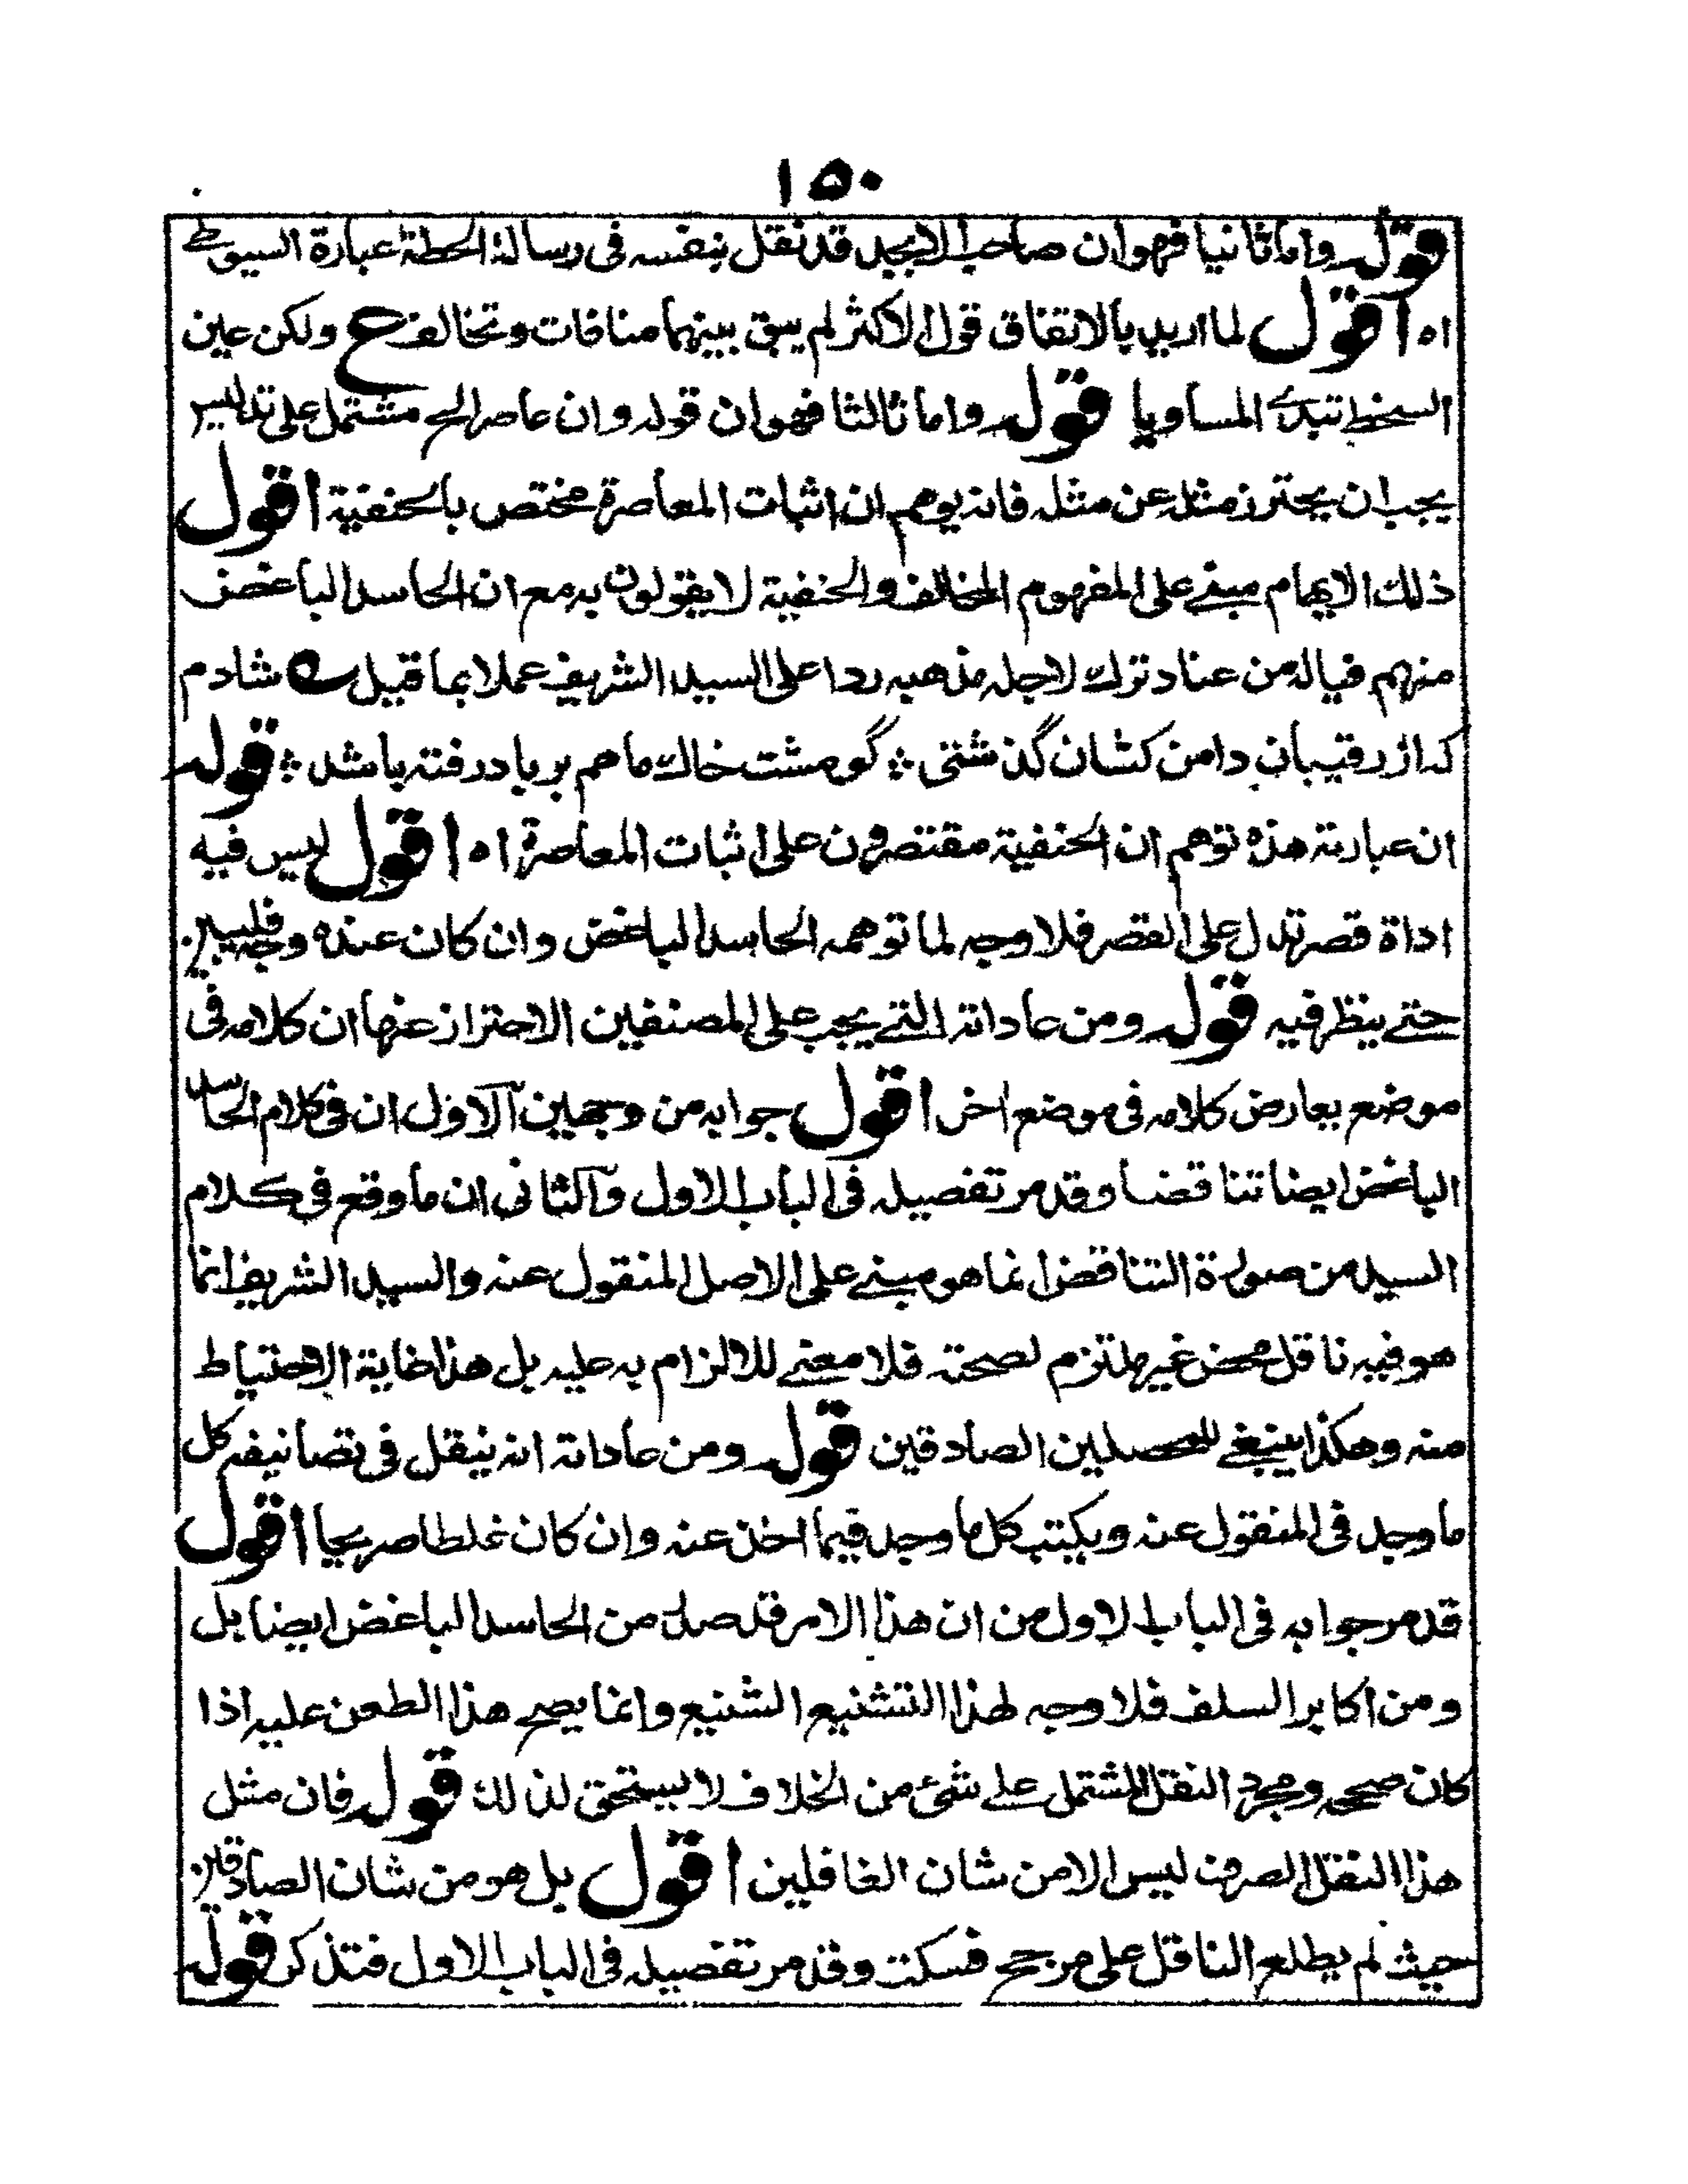 ١٥٠
قوله واما ثانيا فهو ان صاحب الابجد قد نقل بنفسه فى رسالة الحطة عبارة السيوطے
اه اقول لما اريد بالاتفاق قول الاكثر لم يبق بينهما منافات وتخالف ع ولكن عين
السخط تبدے المساويا قوله واما ثالثا فهو ان قوله وان عاصر الخ مشتمل على تدليس
يجب ان يحترز مثله عن مثله فانه يوهم ان اثبات المعاصرة مختص بالحنفية اقول
ذلك الايهام مبنے على المفهوم المخالف والحنفية لا يقولون به مع ان الحاسد الباغض
منهم فياله من عناد ترك لاجله مذهبه ردا على السيد الشريف عملا بما قيل ے شادم
كه از رقيبان دامن كشان گذشتى ؞ گو مشت خاك ما هم بر باد رفته باشد ؞ قوله
ان عبارته هذه توهم ان الحنفية مقتصرون على اثبات المعاصرة اه اقول ليس فيه
اداة قصر تدل على القصر فلا وجه لما توهمه الحاسد الباغض وان كان عنده وجه فليبين
حتے ينظر فيه قوله ومن عاداته التے يجب على المصنفين الاحتراز عنها ان كلامه فى
موضع يعارض كلامه فى موضع اخر اقول جوابه من وجهين الاول ان فى كلام الحاسد
الباغض ايضا تناقضا وقد مر تفصيله فى الباب الاول والثانى ان ما وقع فى كلام
السيد من صورة التناقض انما هو مبنے على الاصل المنقول عنه والسيد الشريف انما
هو فيه ناقل محض غير ملتزم لصحته فلا معنے للالزام به عليه بل هذا غاية الاحتياط
منه وهكذا ينبغے للمحصلين الصادقين قوله ومن عاداته انه ينقل فى تصانيفه كل
ما وجد فى المنقول عنه ويكتب كل ما وجد فيما اخذ عنه وان كان غلطا صريحا اقول
قد مر جوابه فى الباب الاول من ان هذا الامر قد صدر من الحاسد الباغض ايضا بل
ومن اكابر السلف فلا وجه لهذا التشنيع الشنيع وانما يصح هذا الطعن عليه اذا
كان صححه ومجرد النقل المشتمل علے شئ من الخلاف لا يستحق لذلك قوله فان مثل
هذا النقل الصرف ليس الا من شان الغافلين اقول بل هو من شان الصادقين
حيث لم يطلع الناقل على مرجح فسكت وقد مر تفصيله فى الباب الاول فتذكر قوله